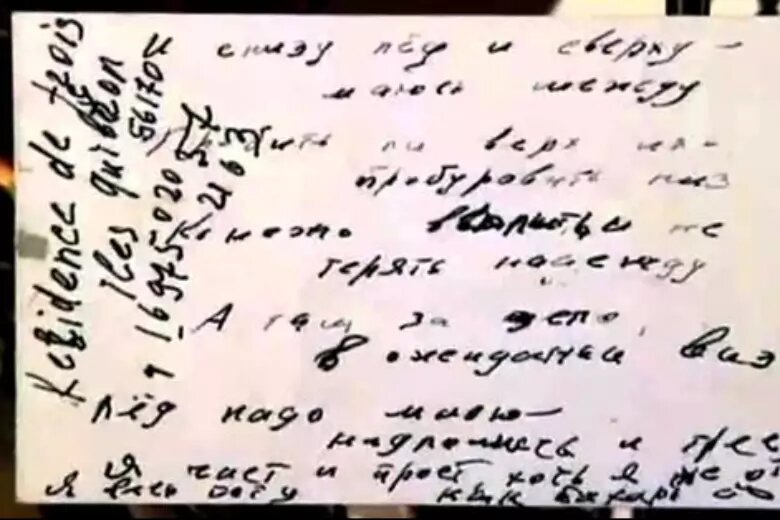 Residence de trois
Iles quibron
56170
16975 020 37
21 63
и снизу лёд и сверху —
маюсь между
ли верх
пробуравить низ
Конечно всплыть и не
терять надежду
А там за дело,
В ожидании виз
Лёд надо мною —
надломись и трес
я чист и прост хоть я не о
Я весь поту как